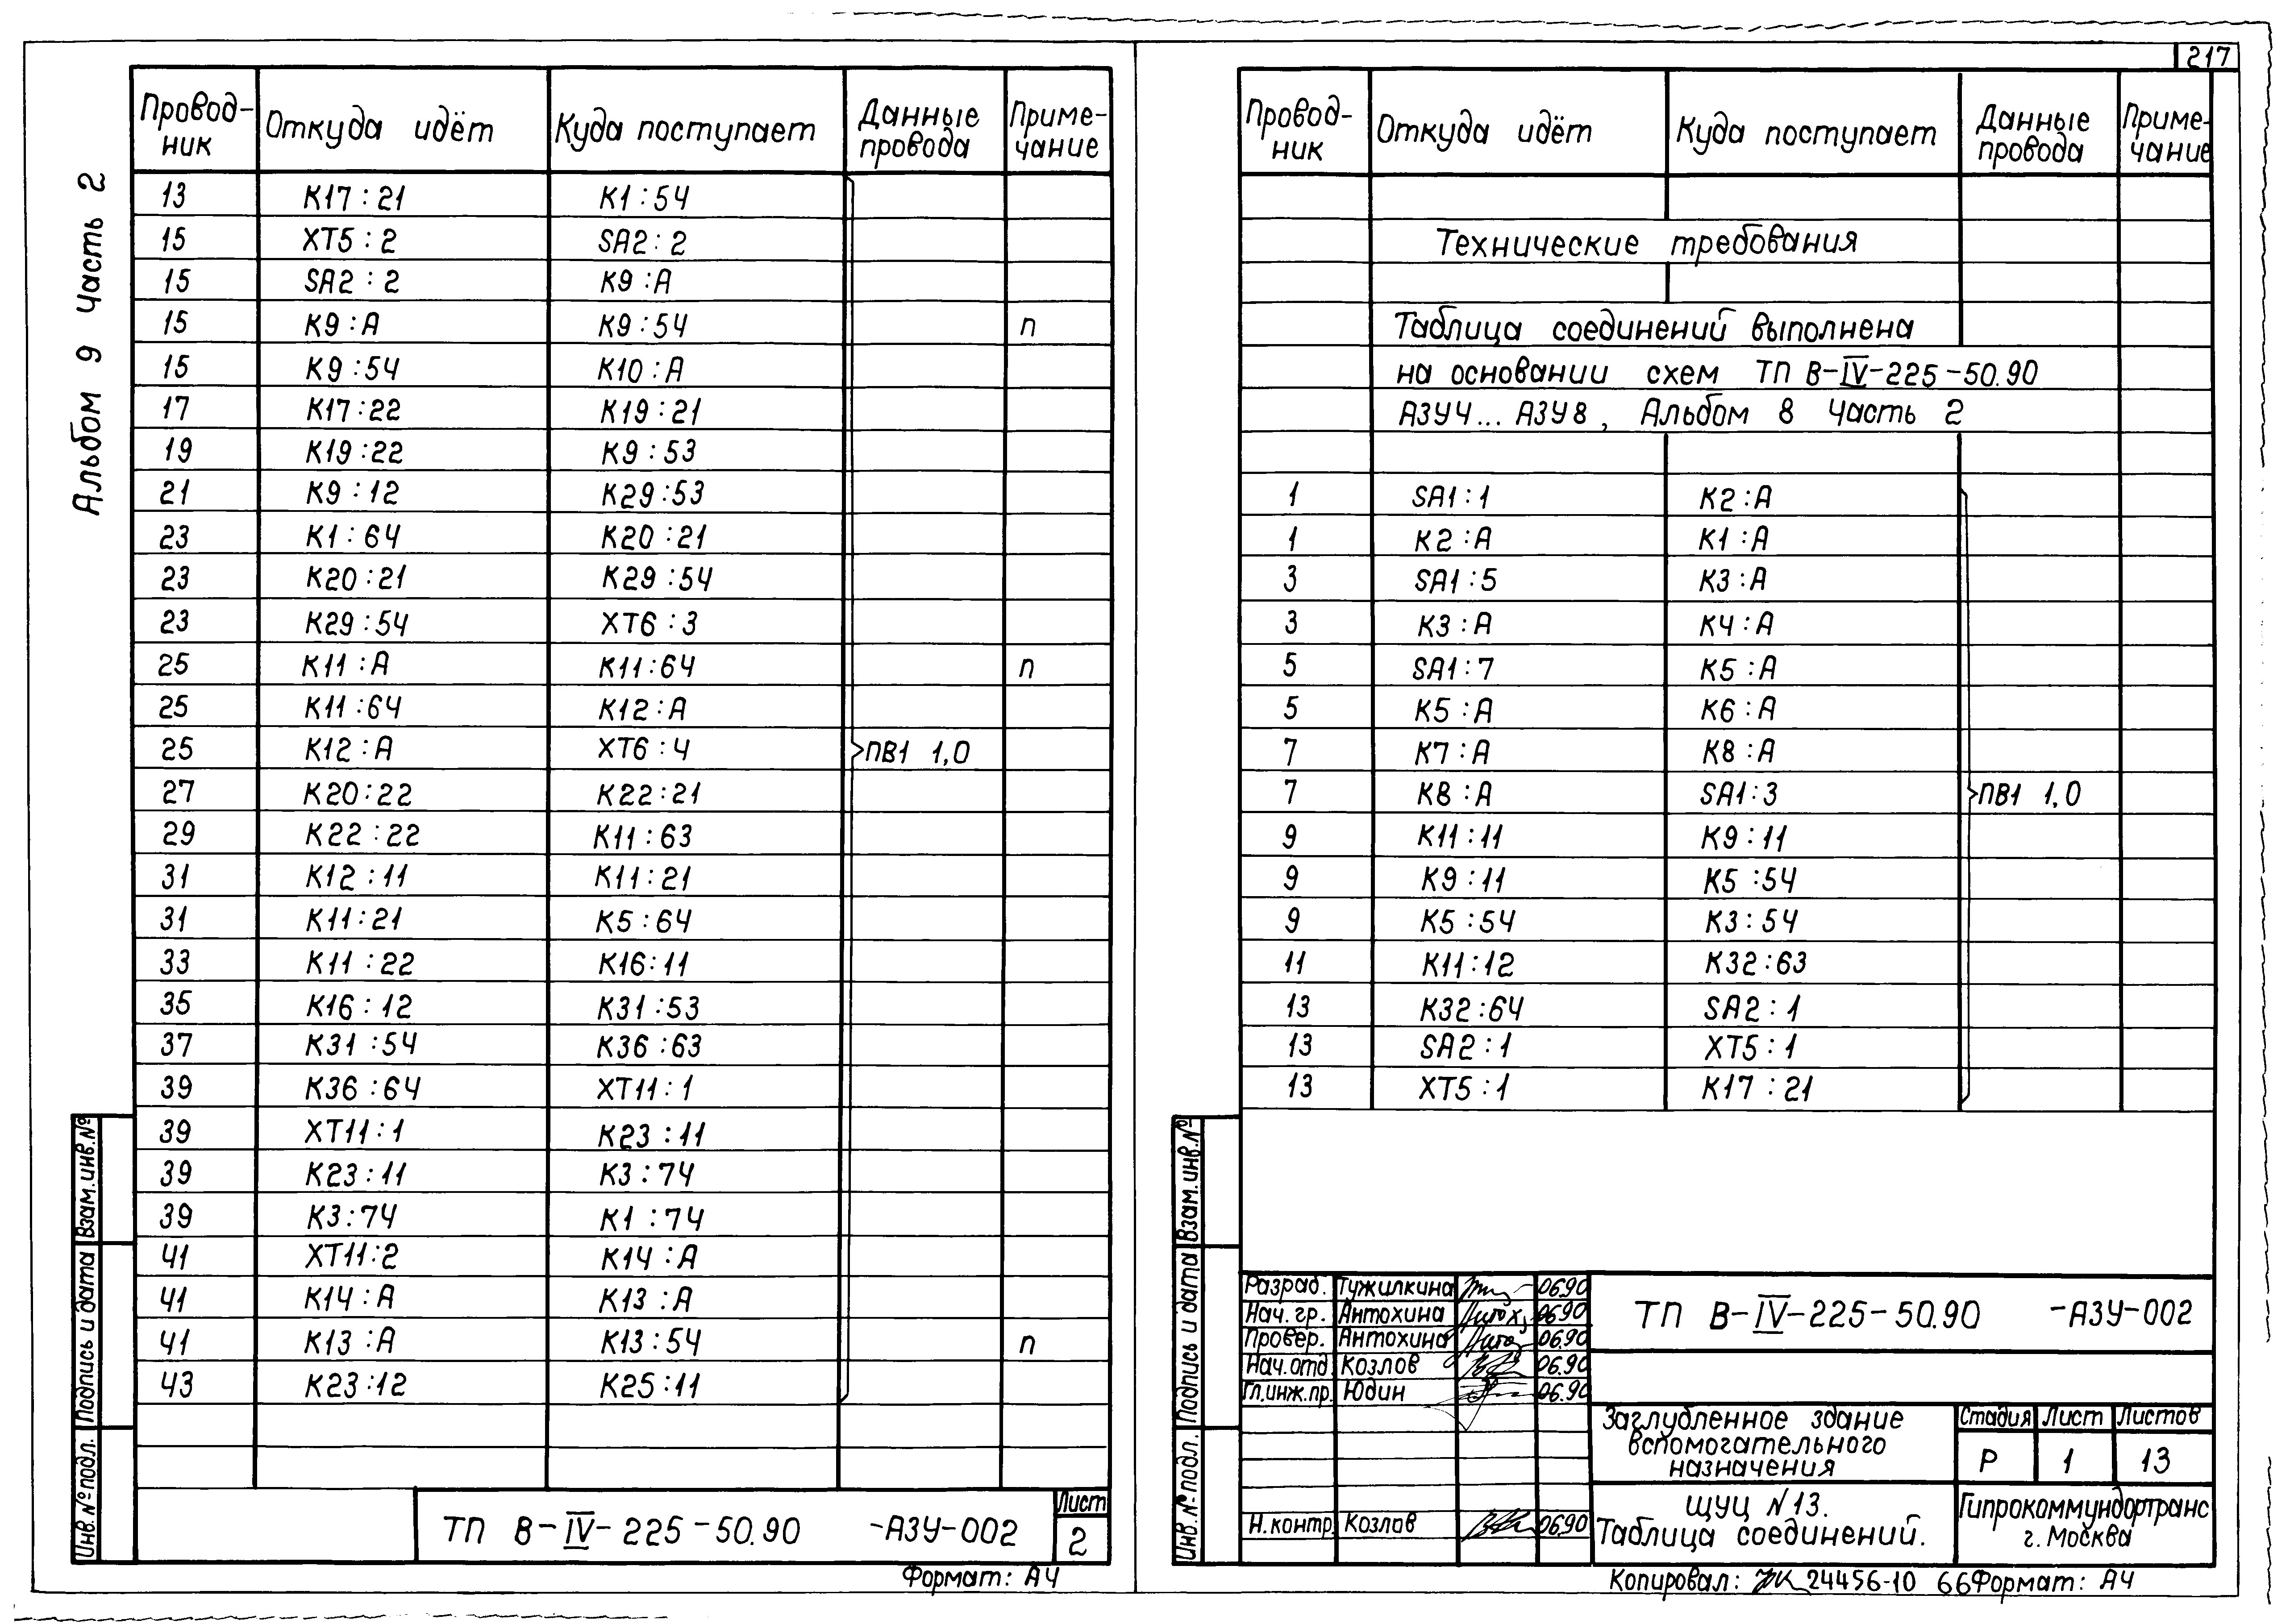 217
Альбом 9 Часть 2
Провод- Откуда идёт Куда поступает Данные Приме-
ник провода чание
13 К17:21 К1:54
15 ХТ5:2 SA2:2
15 SA2:2 К9:А
15 К9:А К9:54 п
15 К9:54 К10:А
17 К17:22 К19:21
19 К19:22 К9:53
21 К9:12 К29:53
23 К1:64 К20:21
23 К20:21 К29:54
23 К29:54 ХТ6:3
25 К11:А К11:64 п
25 К11:64 К12:А
25 К12:А ХТ6:4 ПВ1 1,0
27 К20:22 К22:21
29 К22:22 К11:63
31 К12:11 К11:21
31 К11:21 К5:64
33 К11:22 К16:11
35 К16:12 К31:53
37 К31:54 К36:63
39 К36:64 ХТ11:1
39 ХТ11:1 К23:11
39 К23:11 К3:74
39 К3:74 К1:74
41 ХТ11:2 К14:А
41 К14:А К13:А
41 К13:А К13:54 п
43 К23:12 К25:11
Взам.инв.№
Подпись и дата
Инв.№подл.
ТП В-IV-225-50.90 -АЗУ-002
Лист
2
Формат: А4
Провод- Откуда идёт Куда поступает Данные Приме-
ник провода чание
Технические требования
Таблица соединений выполнена
на основании схем ТП В-IV-225-50.90
АЗУ4... АЗУ8, Альбом 8 Часть 2
1 SA1:1 К2:А
1 К2:А К1:А
3 SA1:5 К3:А
3 К3:А К4:А
5 SA1:7 К5:А
5 К5:А К6:А
7 К7:А К8:А
7 К8:А SA1:3 ПВ1 1,0
9 К11:11 К9:11
9 К9:11 К5:54
9 К5:54 К3:54
11 К11:12 К32:63
13 К32:64 SA2:1
13 SA2:1 ХТ5:1
13 ХТ5:1 К17:21
Взам.инв.№
Подпись и дата
Инв.№подл.
Разраб. Тужилкина 06.90
Нач.гр. Антохина 06.90
Провер. Антохина 06.90
Нач.отд. Козлов 06.90
Гл.инж.пр. Юдин 06.90
Н.контр. Козлов 06.90
ТП В-IV-225-50.90 -АЗУ-002
Заглубленное здание
вспомогательного
назначения
Стадия Лист Листов
Р 1 13
ЩУЦ №13.
Таблица соединений.
Гипрокоммундортранс
г.Москва
Копировал: 24456-10 66 Формат: А4